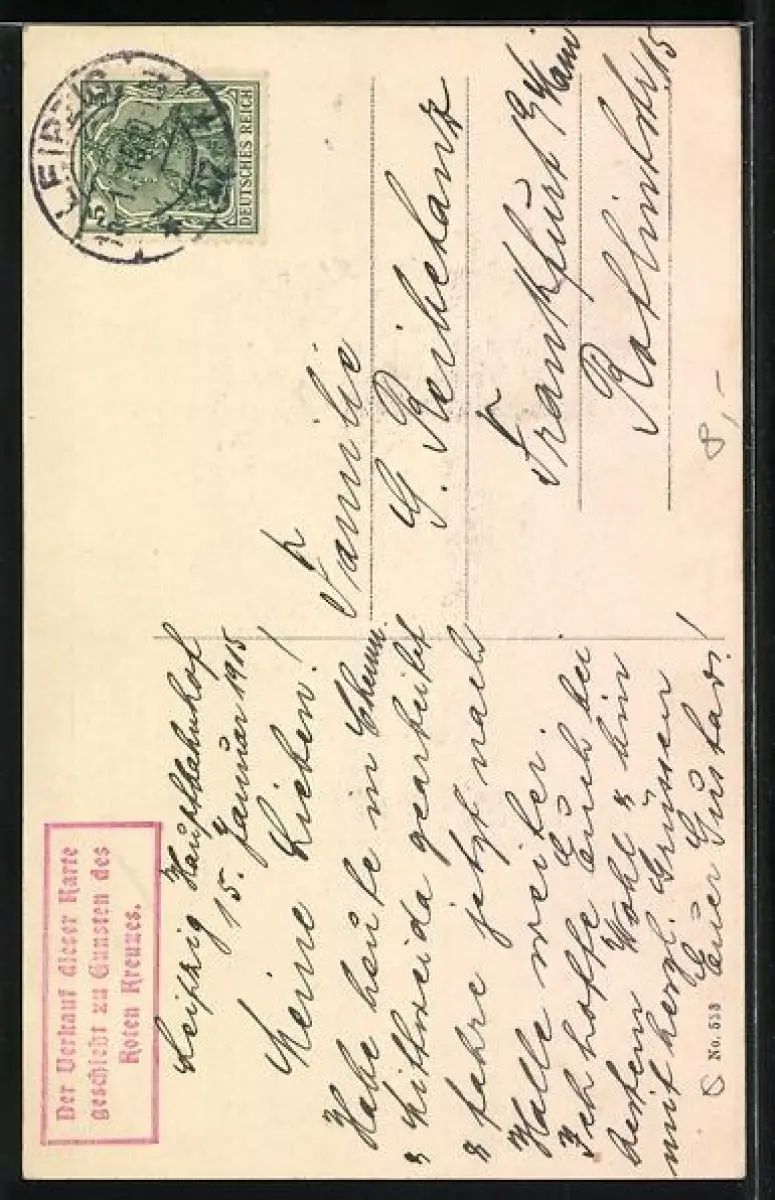 Der Verkauf dieser Karte
geschieht zu Gunsten des
Roten Kreuzes.
Leipzig Hauptbahnhof
15. Januar 1915
Meine Lieben!
Habe heute in Chemn.
& Mittweida gearbeitet
& fahre jetzt nach
Halle weiter.
Ich hoffe Euch bei
bestem Wohl & bin
mit herzl. Grüssen
Euer Gustav!
No. 533
LEIPZIG
DEUTSCHES REICH
Familie
G.
Frankfurt a/Main
15
8,-